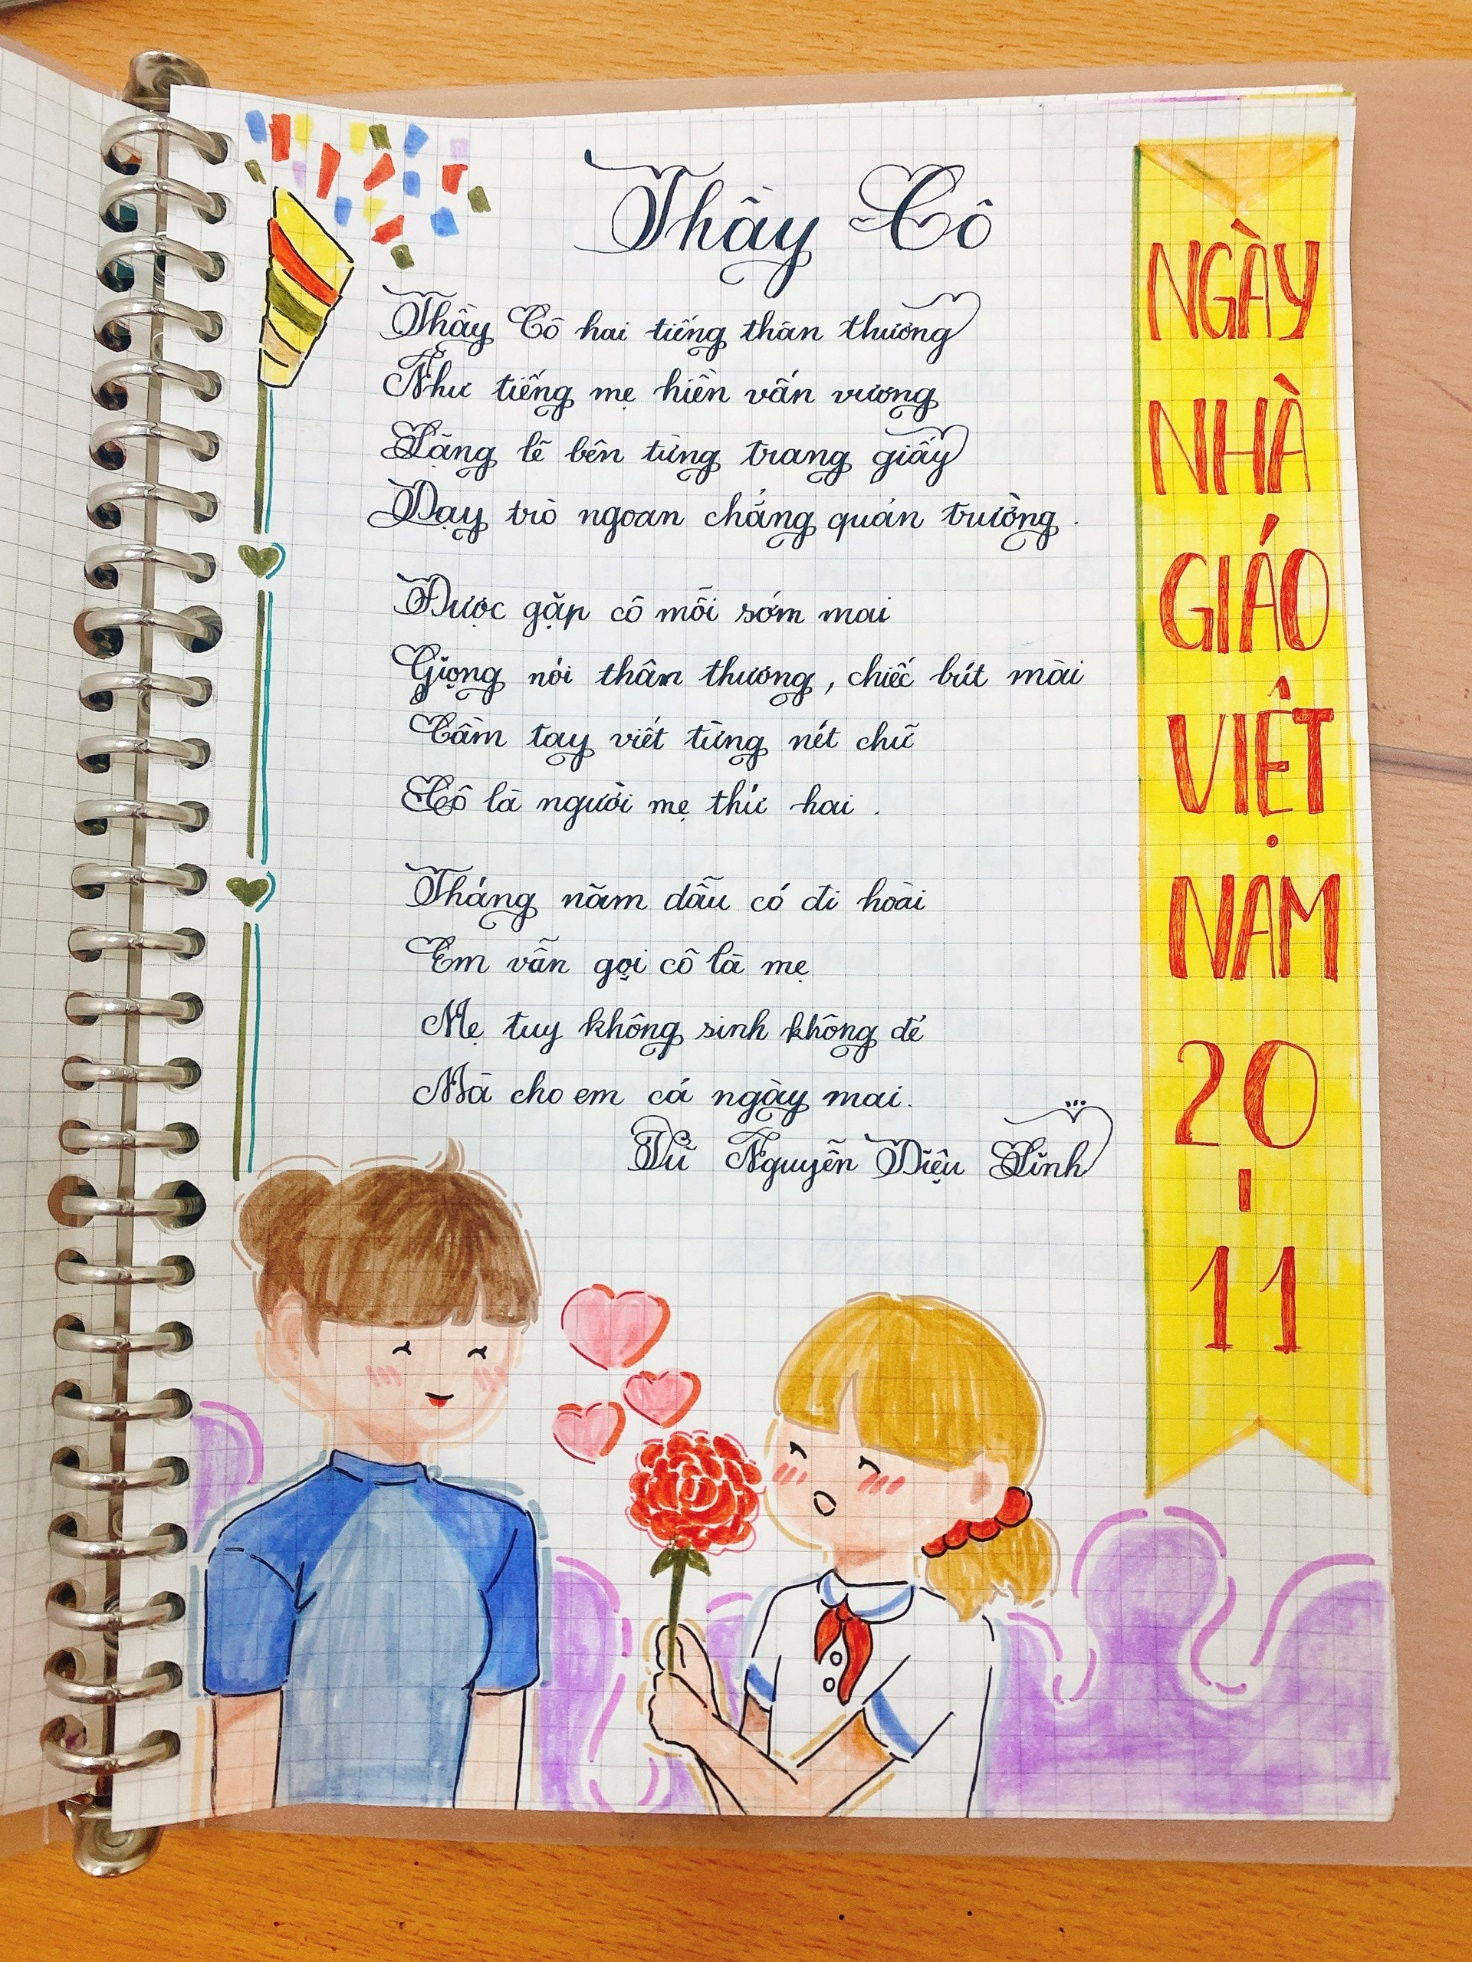 Thầy Cô
Thầy Cô hai tiếng thân thương
Như tiếng mẹ hiền vấn vương
Lặng lẽ bên từng trang giấy
Dạy trò ngoan chẳng quản trường.
Được gặp cô mỗi sớm mai
Giọng nói thân thương, chiếc bút mài
Cầm tay viết từng nét chữ
Cô là người mẹ thứ hai.
Tháng năm dẫu có đi hoài
Em vẫn gọi cô là mẹ
Mẹ tuy không sinh không đẻ
Mà cho em cả ngày mai.
Từ Nguyễn Diệu Linh
NGÀY
NHÀ
GIÁO
VIỆT
NAM
20
-
11